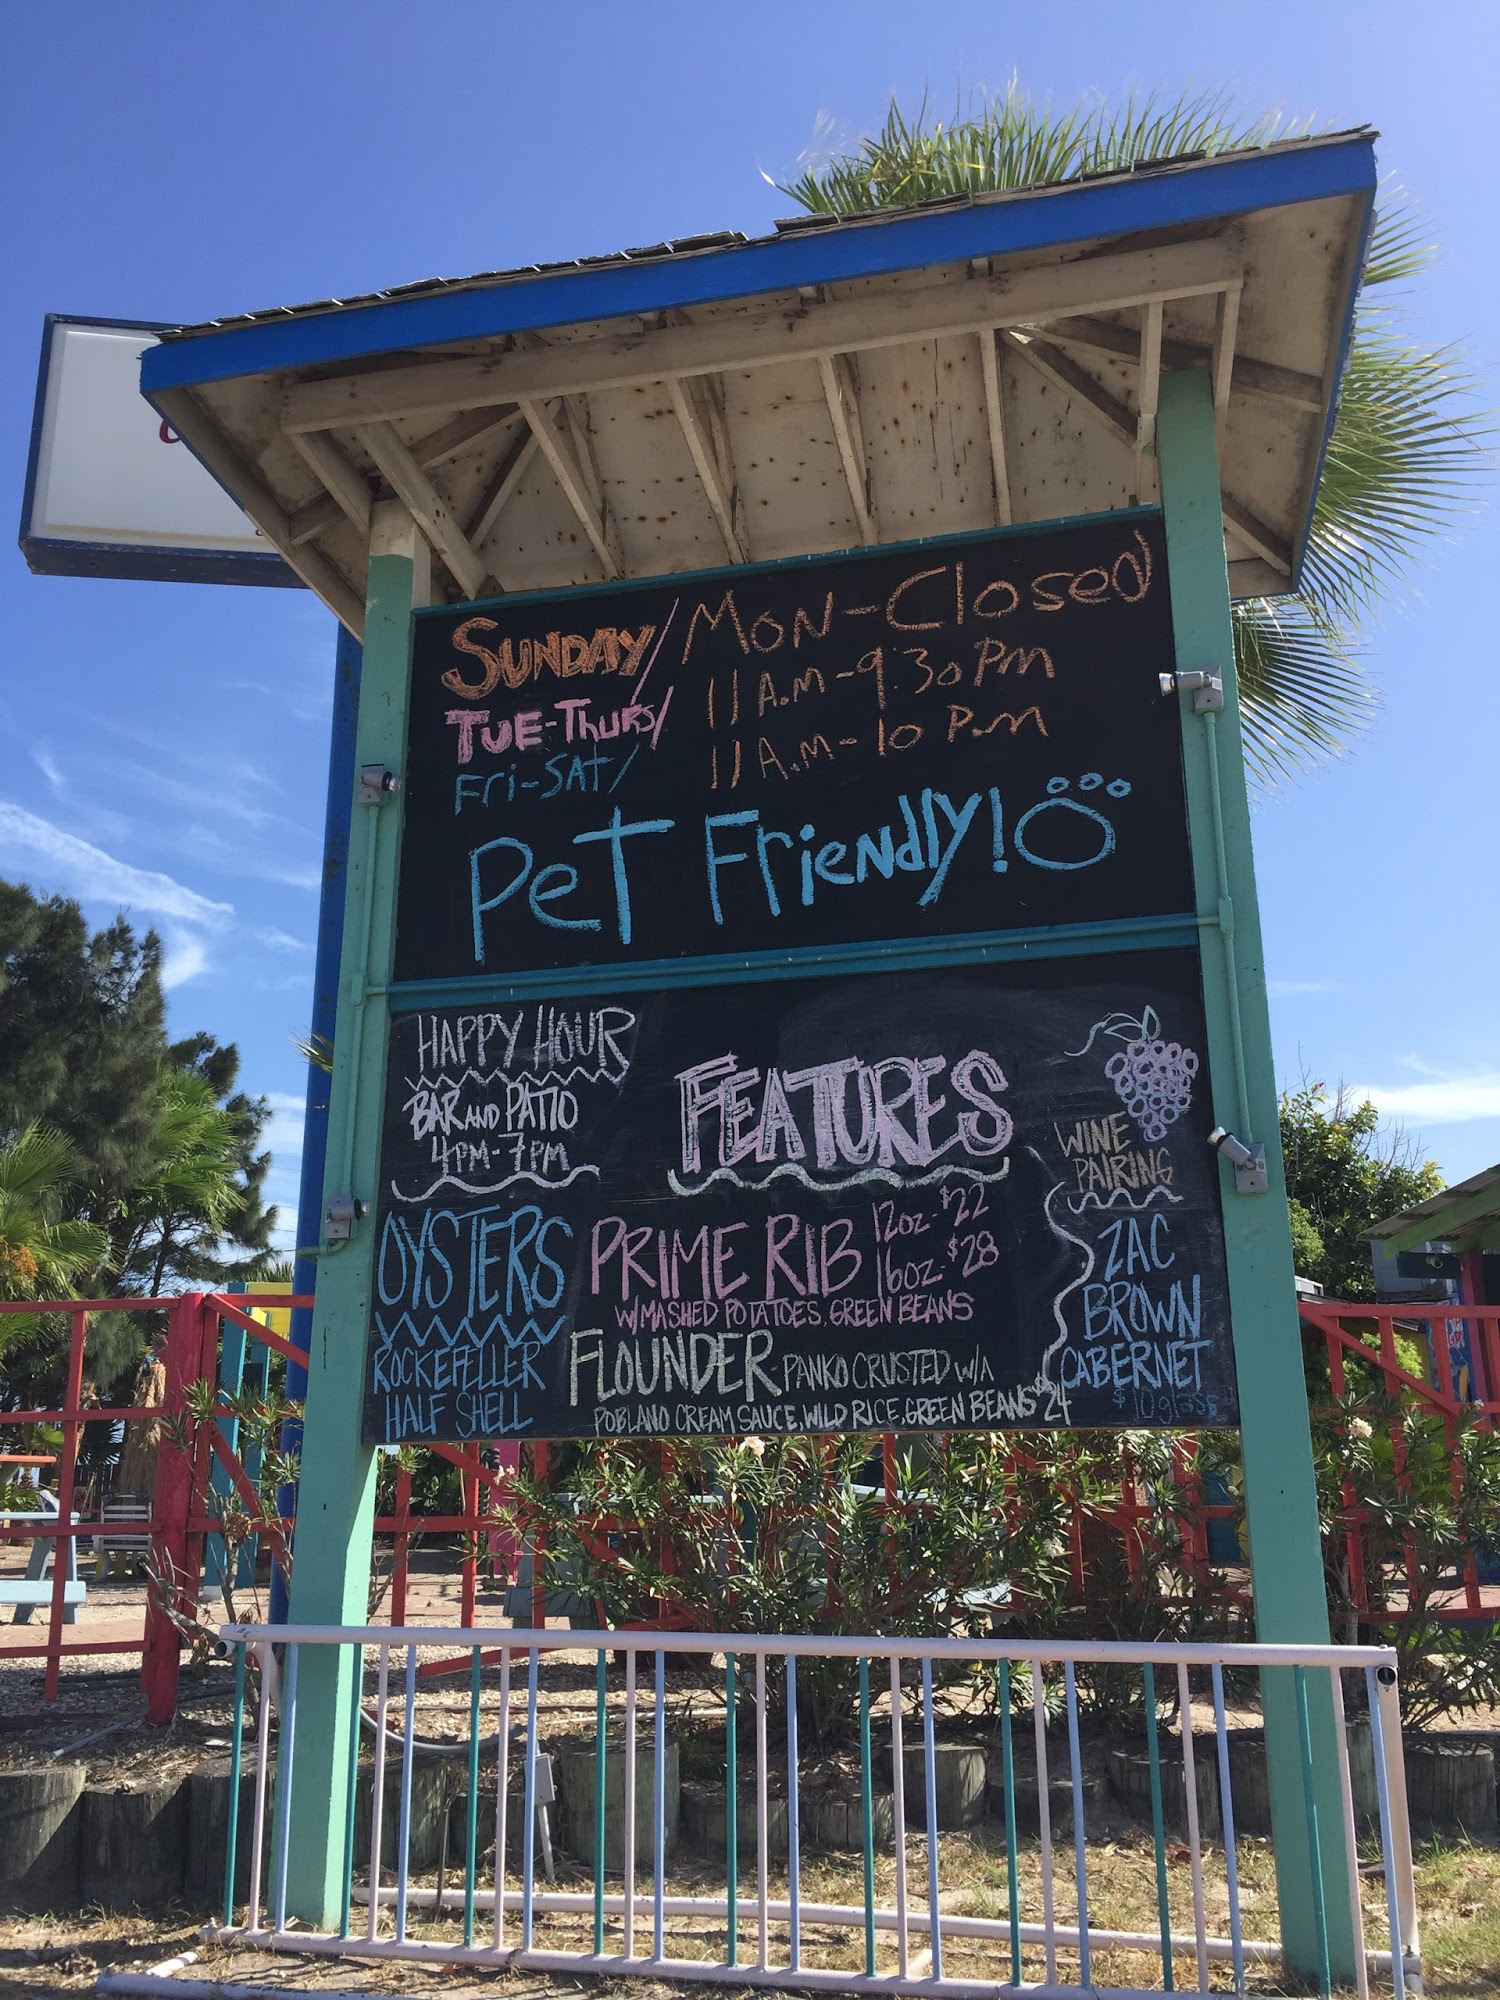 SUNDAY/MON-Closed
TUE-Thurs/ 11A.M-9:30PM
Fri-SAT/ 11A.M-10 P.M
PeT Friendly!
HAPPY HOUR
BAR AND PATIO
4PM-7PM
OYSTERS
ROCKEFELLER
HALF SHELL
FEATURES
PRIME RIB 12oz-$22
16oz-$28
W/MASHED POTATOES, GREEN BEANS
FLOUNDER-PANKO CRUSTED W/A
POBLANO CREAM SAUCE, WILD RICE, GREEN BEANS $24
WINE
PAIRING
ZAC
BROWN
CABERNET
$10glass